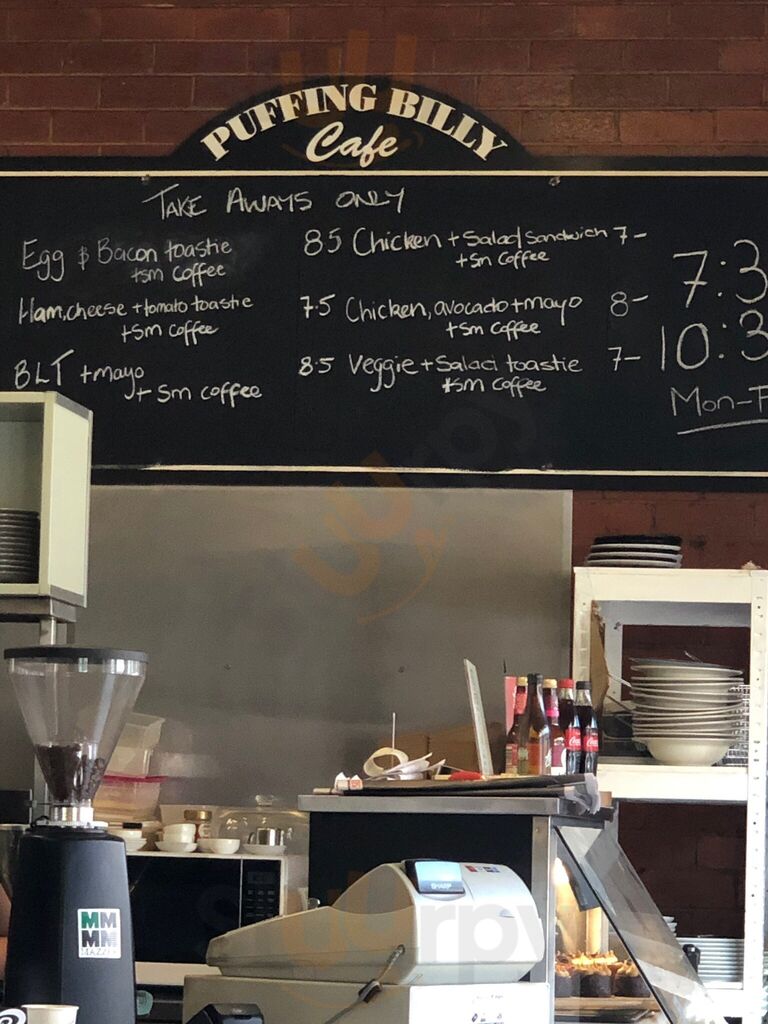 PUFFING BILLY
Cafe
TAKE AWAYS ONLY
Egg & Bacon toastie 8.5
+sm coffee
Ham, cheese + tomato toastie 7.5
+sm coffee
BLT + mayo 8.5
+ sm coffee
Chicken + Salad sandwich 7-
+sm coffee
Chicken, avocado + mayo 8-
+sm coffee
Veggie + Salad toastie 7-
+sm coffee
7:3
10:3
Mon-F
SHARP
MAZZER